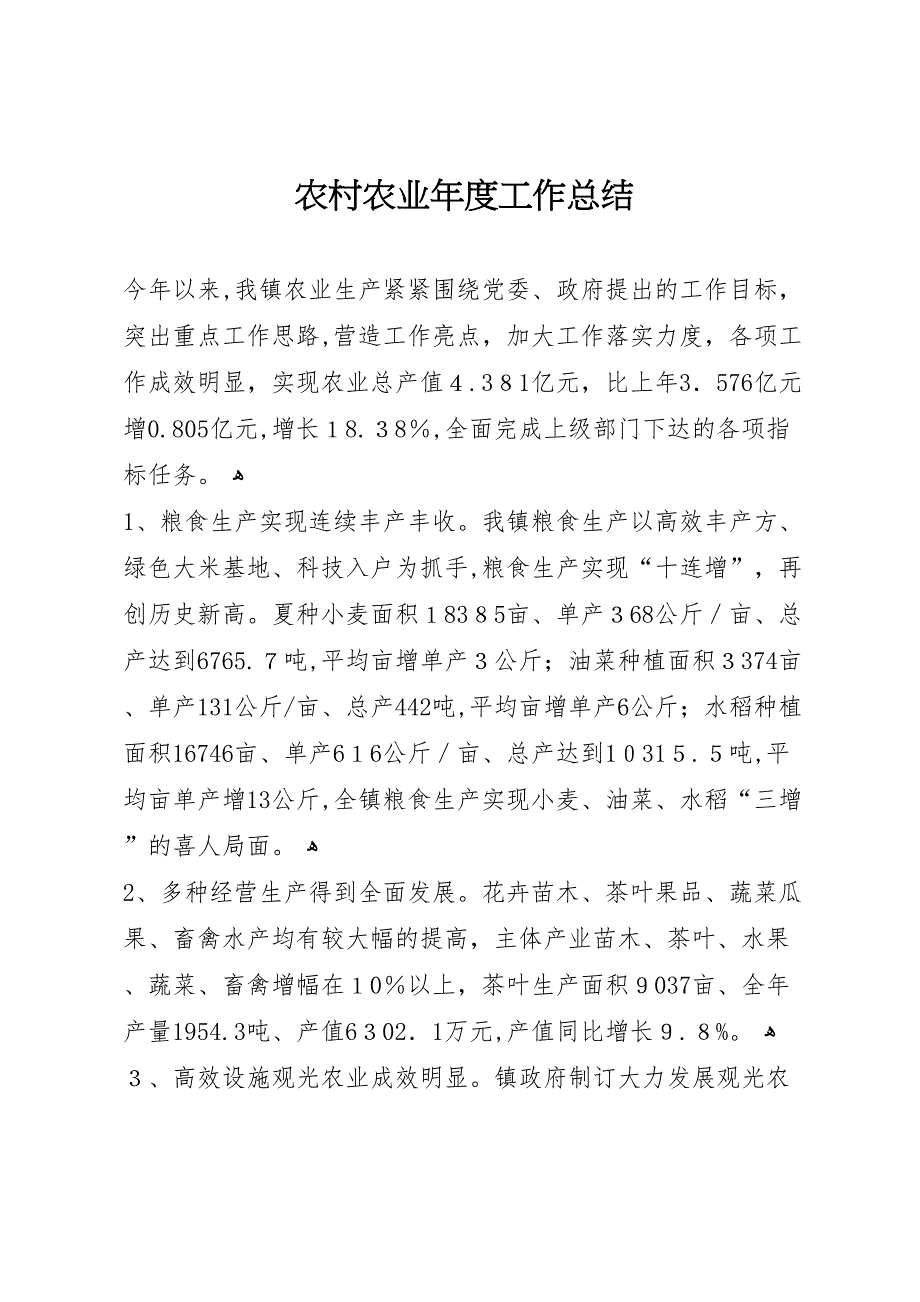 农村农业年度工作总结
今年以来,我镇农业生产紧紧围绕党委、政府提出的工作目标，
突出重点工作思路,营造工作亮点，加大工作落实力度，各项工
作成效明显，实现农业总产值４.３８１亿元，比上年3．576亿元
增0.805亿元,增长１８.３８％,全面完成上级部门下达的各项指
标任务。 ﻫ
1、粮食生产实现连续丰产丰收。我镇粮食生产以高效丰产方、
绿色大米基地、科技入户为抓手,粮食生产实现“十连增”，再
创历史新高。夏种小麦面积１８３８５亩、单产３68公斤／亩、总
产达到6765.７吨,平均亩增单产３公斤；油菜种植面积３374亩
、单产131公斤/亩、总产442吨,平均亩增单产6公斤；水稻种植
面积16746亩、单产6１６公斤／亩、总产达到1０３1５.５吨,平
均亩单产增13公斤,全镇粮食生产实现小麦、油菜、水稻“三增
”的喜人局面。 ﻫ
2、多种经营生产得到全面发展。花卉苗木、茶叶果品、蔬菜瓜
果、畜禽水产均有较大幅的提高，主体产业苗木、茶叶、水果
、蔬菜、畜禽增幅在１０％以上，茶叶生产面积９037亩、全年
产量1954.3吨、产值6３02．1万元,产值同比增长９.８%。 ﻫ
３、高效设施观光农业成效明显。镇政府制订大力发展观光农